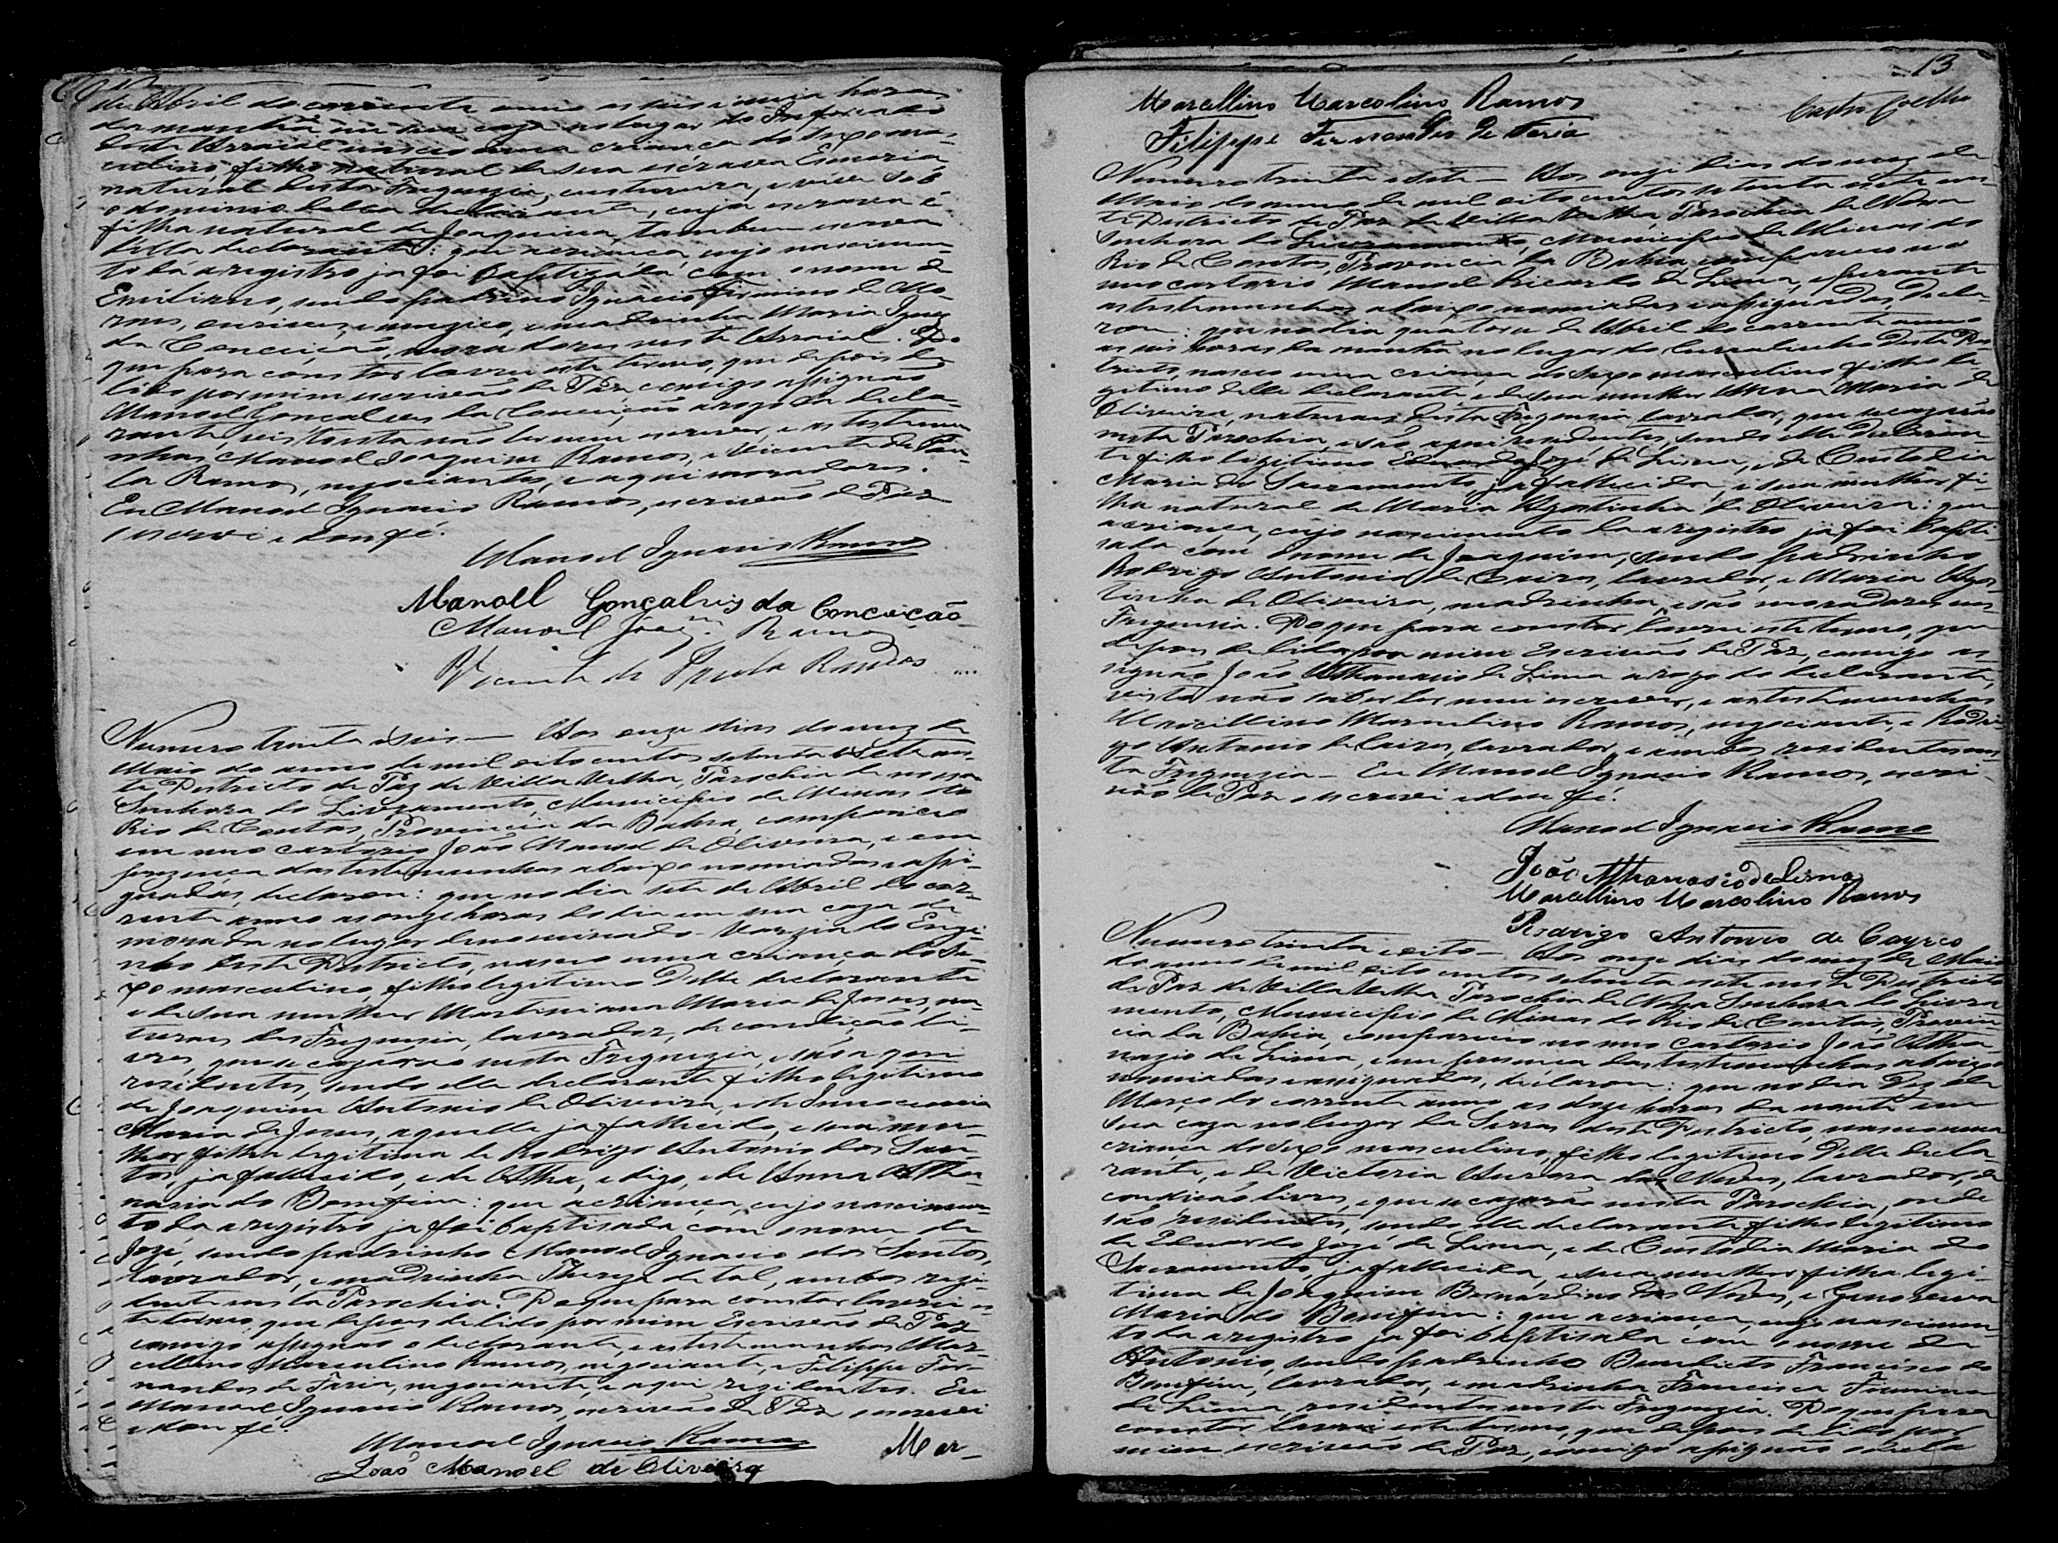 de Abril do corrente anno as seis e meia horas
da manhã em sua caza no lugar do
deste Arraial nasceo uma criança do sexo mas-
culino, filho natural de sua escrava Esmeria,
natural desta Freguezia, custureira, e vive sob
o dominio della declarante, cuja escrava é
filha natural de Joaquina, tambem escrava
della declarante: que a criança, cujo nascimen-
to dá a registro já foi baptizada com o nome de
Emiliano, sendo padrinho Ignacio Firmino de Mo-
raes, e musico, e madrinha Maria Ignez
da Conceição, moradores neste Arraial. Do
que para constar lavrei este termo, que depois de
lido por mim escrivão de Paz, comigo assignão
Manoel Gonçalves da Conceição a rogo da decla-
rante, visto esta não ler nem escrever, e as testemu-
nhas, Manoel Joaquim Ramos, e Vicente de Pau-
la Ramos, negociantes, e aqui moradores.
Eu Manoel Ignacio Ramos, escrivão de Paz
escrevi e dou fé.
Manoel Ignacio Ramos
Manoel Gonçalvis da Conceição
Manoel Joaqm. Ramos
Vicente de Paula Ramos
Numero trinta e seis — Aos onze dias do mez de
Maio do anno de mil oito centos setenta e sete nes-
te Districto de Paz de Villa Velha, Parochia de nossa
Senhora do Livramento, Municipio de Minas do
Rio de Contas, Provincia da Bahia, compareceo
em meo cartorio João Manoel de Oliveira, e em
prezença das testemunhas abaixo nomiadas e assi-
gnadas, declaron: que no dia sete de Abril do cor-
rente anno as onze horas do dia em sua caza de
morada no lugar denominado - Varzia do Enge-
nho deste Districto, nasceo uma criança do se-
xo masculino, filho legitimo delle declarante
e de sua mulher Martiniana Maria de Jesus, na-
turaes da Freguezia, lavrador, de condição li-
vres, que se cazarão nesta Freguezia, e são aqui
rezidentes, sendo elle declarante filho legitimo
de Joaquim Antonio de Oliveira, e de Innocencia
Maria de Jesus, aquelle já fallecido, e sua mu-
lher filha legitima de Rodrigo Antonio dos San-
tos, já fallecido, e de Atha, digo, e de Anna Atha-
nazia do Bomfim: que a criança, cujo nascimen-
to dá a registro já foi baptisada com o nome de
José, sendo padrinho Manoel Ignacio dos Santos,
lavrador, e madrinha Thereza de tal, ambos rezi-
dente nesta Parochia. Do que para constar lavrei es-
te termo que depois de lido por mim Escrivão de Paz
comigo assignão o declarante, e as testemunhas Mar-
cellino Marcolino Ramos, negociante, e Filippe Fer-
nandes de Faria, negociante, e aqui rezidentes. Eu
Manoel Ignacio Ramos, escrivão de Paz escrevi
e dou fé.
Manoel Ignacio Ramos
João Manoel de Oliveira
Mar-
13
Castro Coelho
Marcellino Marcolino Ramos
Filippe Fernandes de Faria
Numero trinta e sete — Aos onze dias do mez de
Maio do anno de mil oito centos setenta e sete nes-
te Districto de Paz de Villa Velha, Parochia de Nossa
Senhora do Livramento, Municipio de Minas do
Rio de Contas, Provincia da Bahia compareceo no
meo cartorio Manoel Ricardo de Lima, e perante
as testemunhas abaixo nomiadas e assignadas, decla-
ron: que no dia quatorze de Abril do corrente anno
as seis horas da manhã no lugar do Curralinho deste Dis-
tricto, nasceo uma criança do sexo masculino, filho le-
gitimo delle declarante, e de sua mulher Anna Maria de
Oliveira, naturaes desta Freguezia, lavrador, que se cazarão
nesta Parochia, e são aqui rezidentes, sendo elle declaran-
te filho legitimo Eduardo José de Lima, e de Custodia
Maria do Sacramento, já fallecida, e sua mulher fi-
lha natural de Maria Agostinha de Oliveira: que
a criança, cujo nascimento da a registro já foi bapti-
sada com o nome de Joaquim, sendo padrinho
Rodrigo Antonio de Cairos, lavrador, e Maria Agos-
tinha de Oliveira, madrinha, e são moradores nes-
Freguezia. Do que para constar lavrei este termo, que
depois de lido por mim Escrivão de Paz, comigo as-
signão João Athanasio de Lima a rogo do declarante,
visto não saber ler nem escrever, e as testemunhas
Marcellino Marcolino Ramos, negociante, e Rodri-
go Antonio de Cairos, lavrador, e ambos rezidentes nes-
ta Freguezia — Eu Manoel Ignacio Ramos, escri-
vão de Paz o escrevi e dou fé.
Manoel Ignacio Ramos
João Athanasio de Lima
Marcellino Marcolino Ramos
Rodrigo Antonio de Cayres
Numero trinta e oito — Aos onze dias do mez de Maio
do anno de mil oito centos setenta e sete neste Districto
de Paz de Villa Velha, Parochia de Nossa Senhora do Livra-
mento, Municipio de Minas do Rio de Contas, Provin-
cia da Bahia, compareceo no meo cartorio João Atha-
nazio de Lima, e em presença das testemunhas abaixo
nomiadas e assignadas, declaron: que no dia dez de
Março do corrente anno as doze horas da noute em
sua caza no lugar da Serra deste Districto, nasceo uma
criança do sexo masculino, filho legitimo delle decla-
rante, e de Victoria Aurora das Neves, lavrador, de
condicão livres, e que se cazarão nesta Parochia, onde
são rezidentes, sendo elle declarante filho legitimo
de Eduardo José de Lima, e de Custodia Maria do
Sacramento, já fallecida, e sua mulher filha legi-
tima de Joaquim Bernardino das Neves, e Genoveva
Maria do Bomfim: que a criança, cujo nascimen-
to da a registro já foi baptisada com o nome de
Antonio, sendo padrinho Benedicto Francisco do
Bomfim, lavrador, e madrinha Francisca Firmina
de Lima, rezidentes nesta Freguezia. Do que para
constar lavrei este termo, que depois de lido por
mim escrivão de Paz, comigo assignão o decla